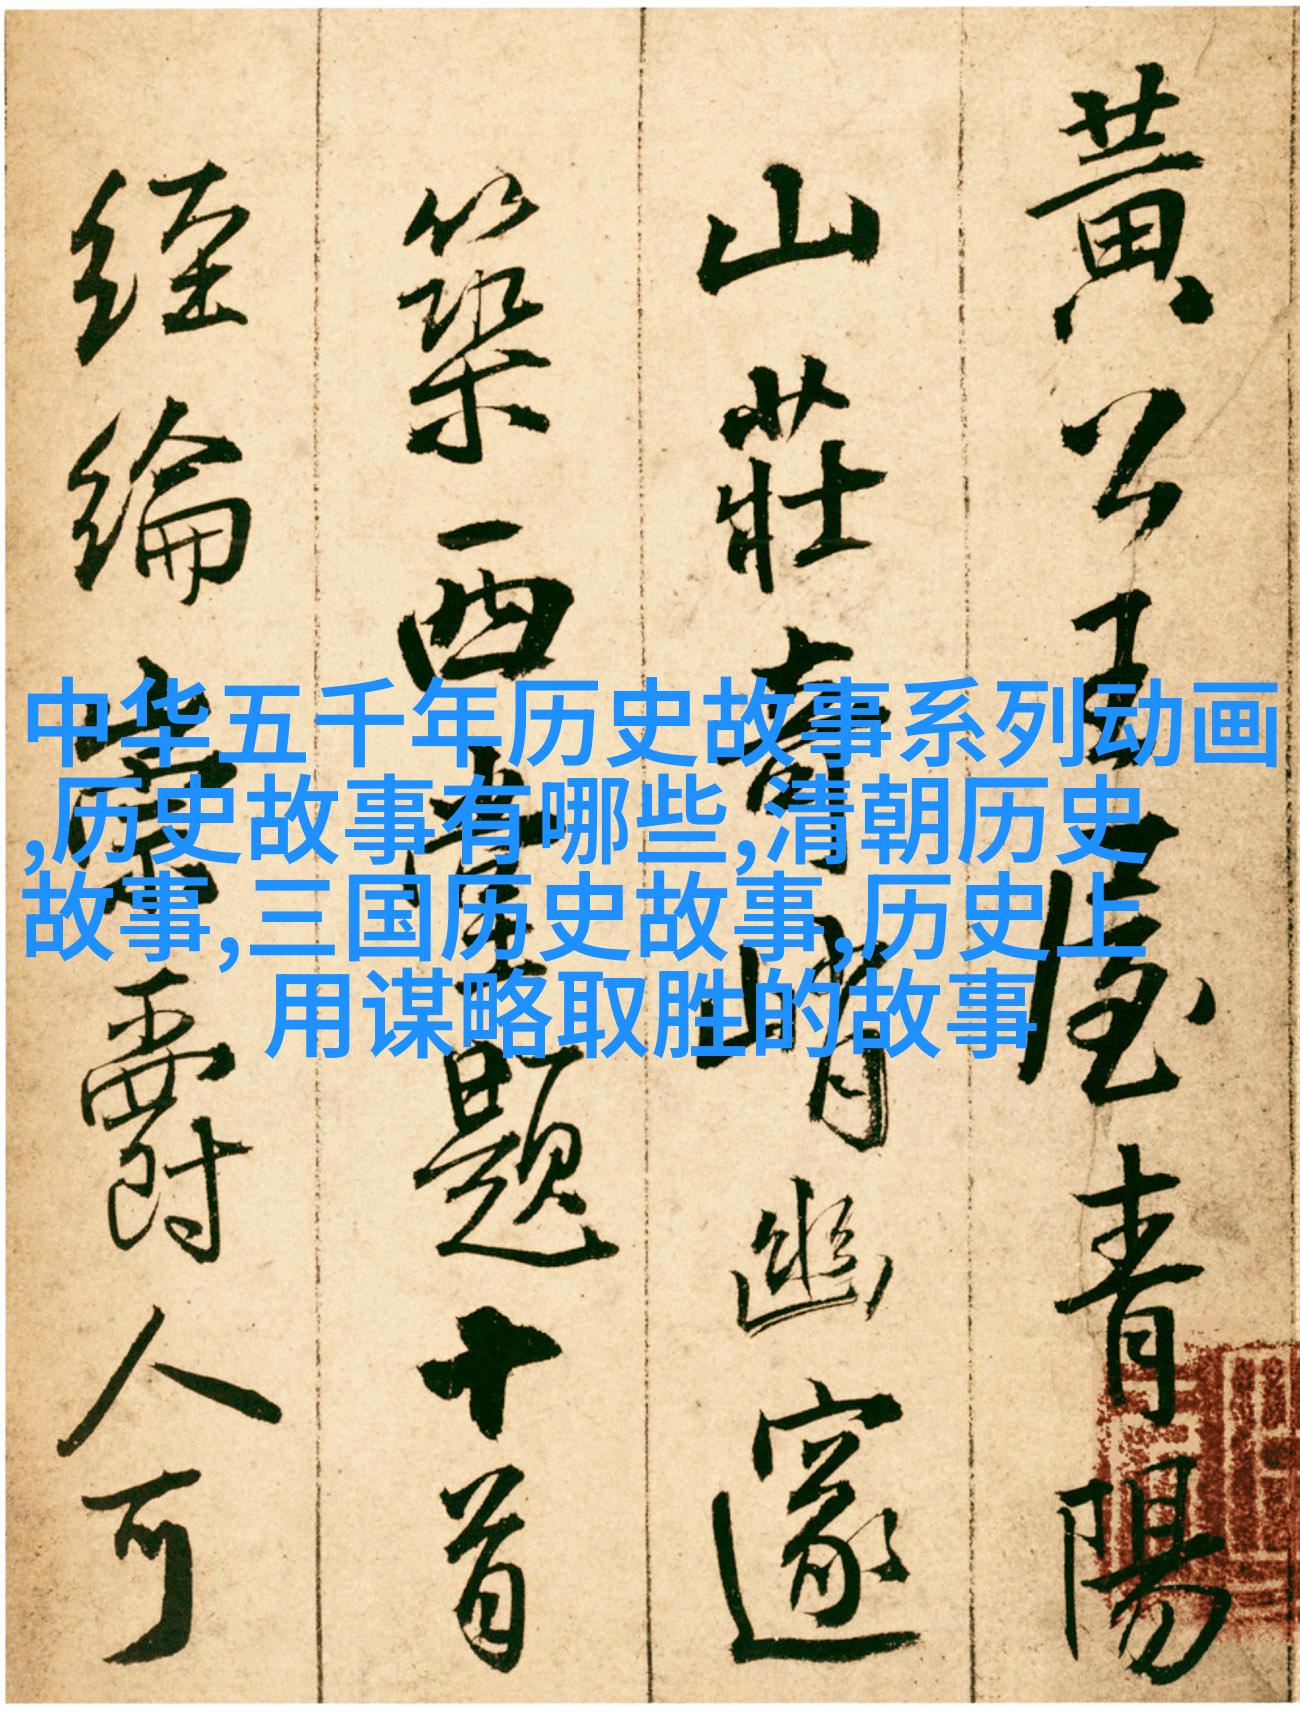 中华五千年历史故事系列动画
,历史故事有哪些,清朝历史
故事,三国历史故事,历史上
用谋略取胜的故事
黃公王屋青陽
山莊奇峭幽邃
築西題十首
經綸爵人可